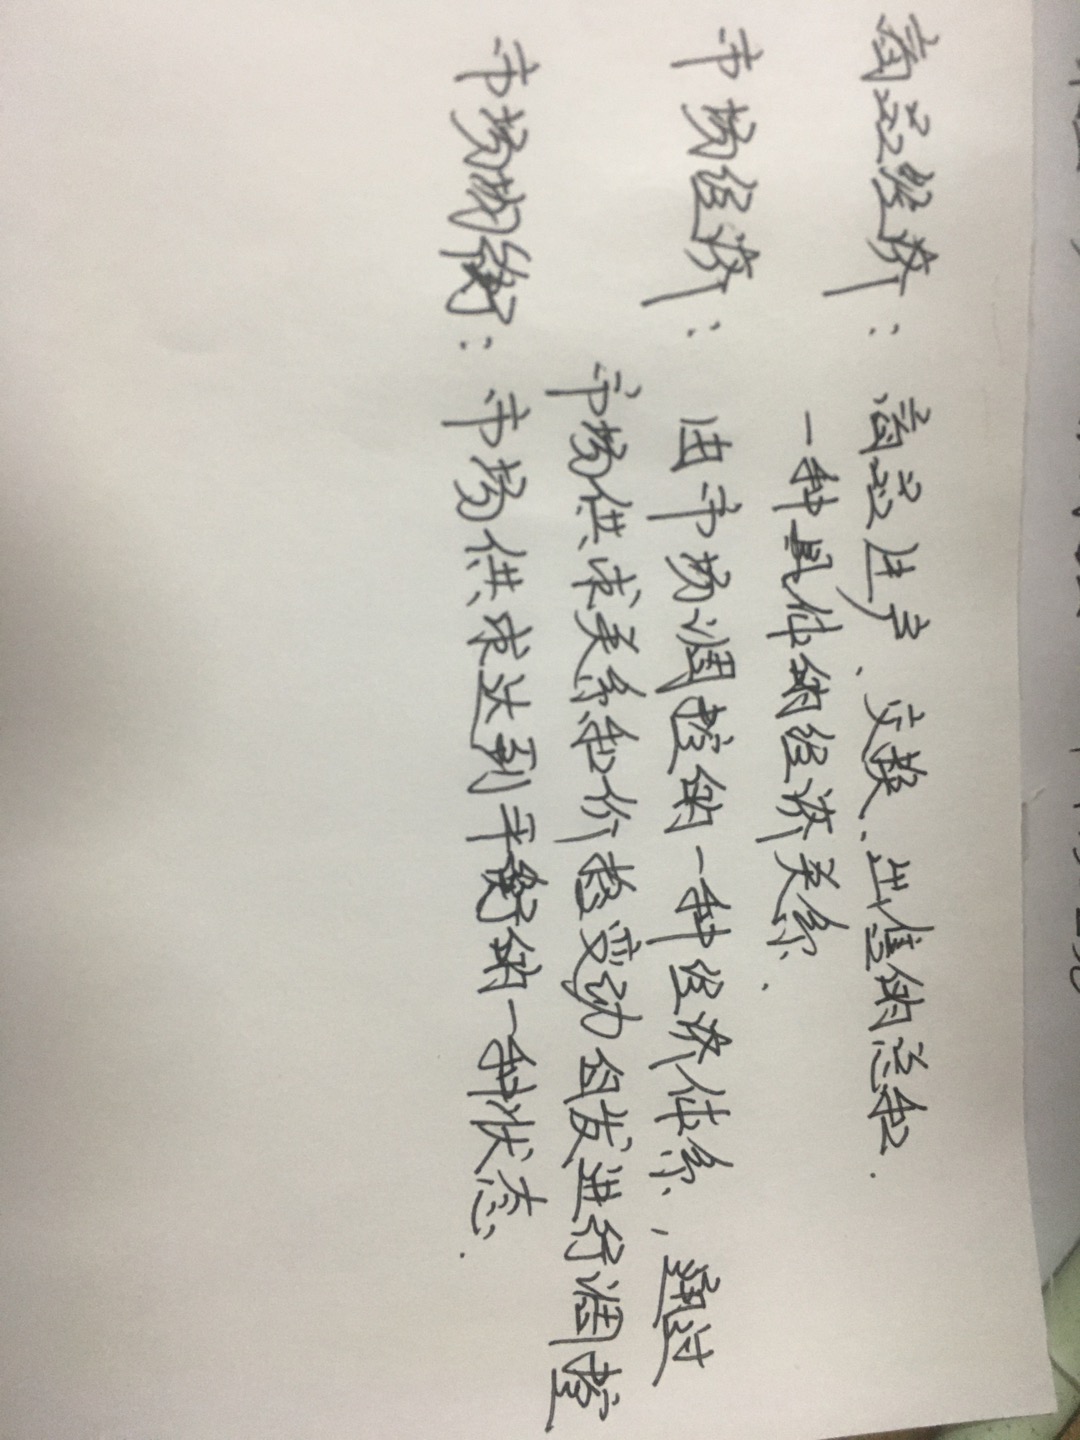 商品经济：商品生产、交换、出售的总和.
一种具体的经济关系.
市场经济：由市场调控的一种经济体系，通过
市场供求关系和价格变动自发进行调整
市场均衡：市场供求达到平衡的一种状态.